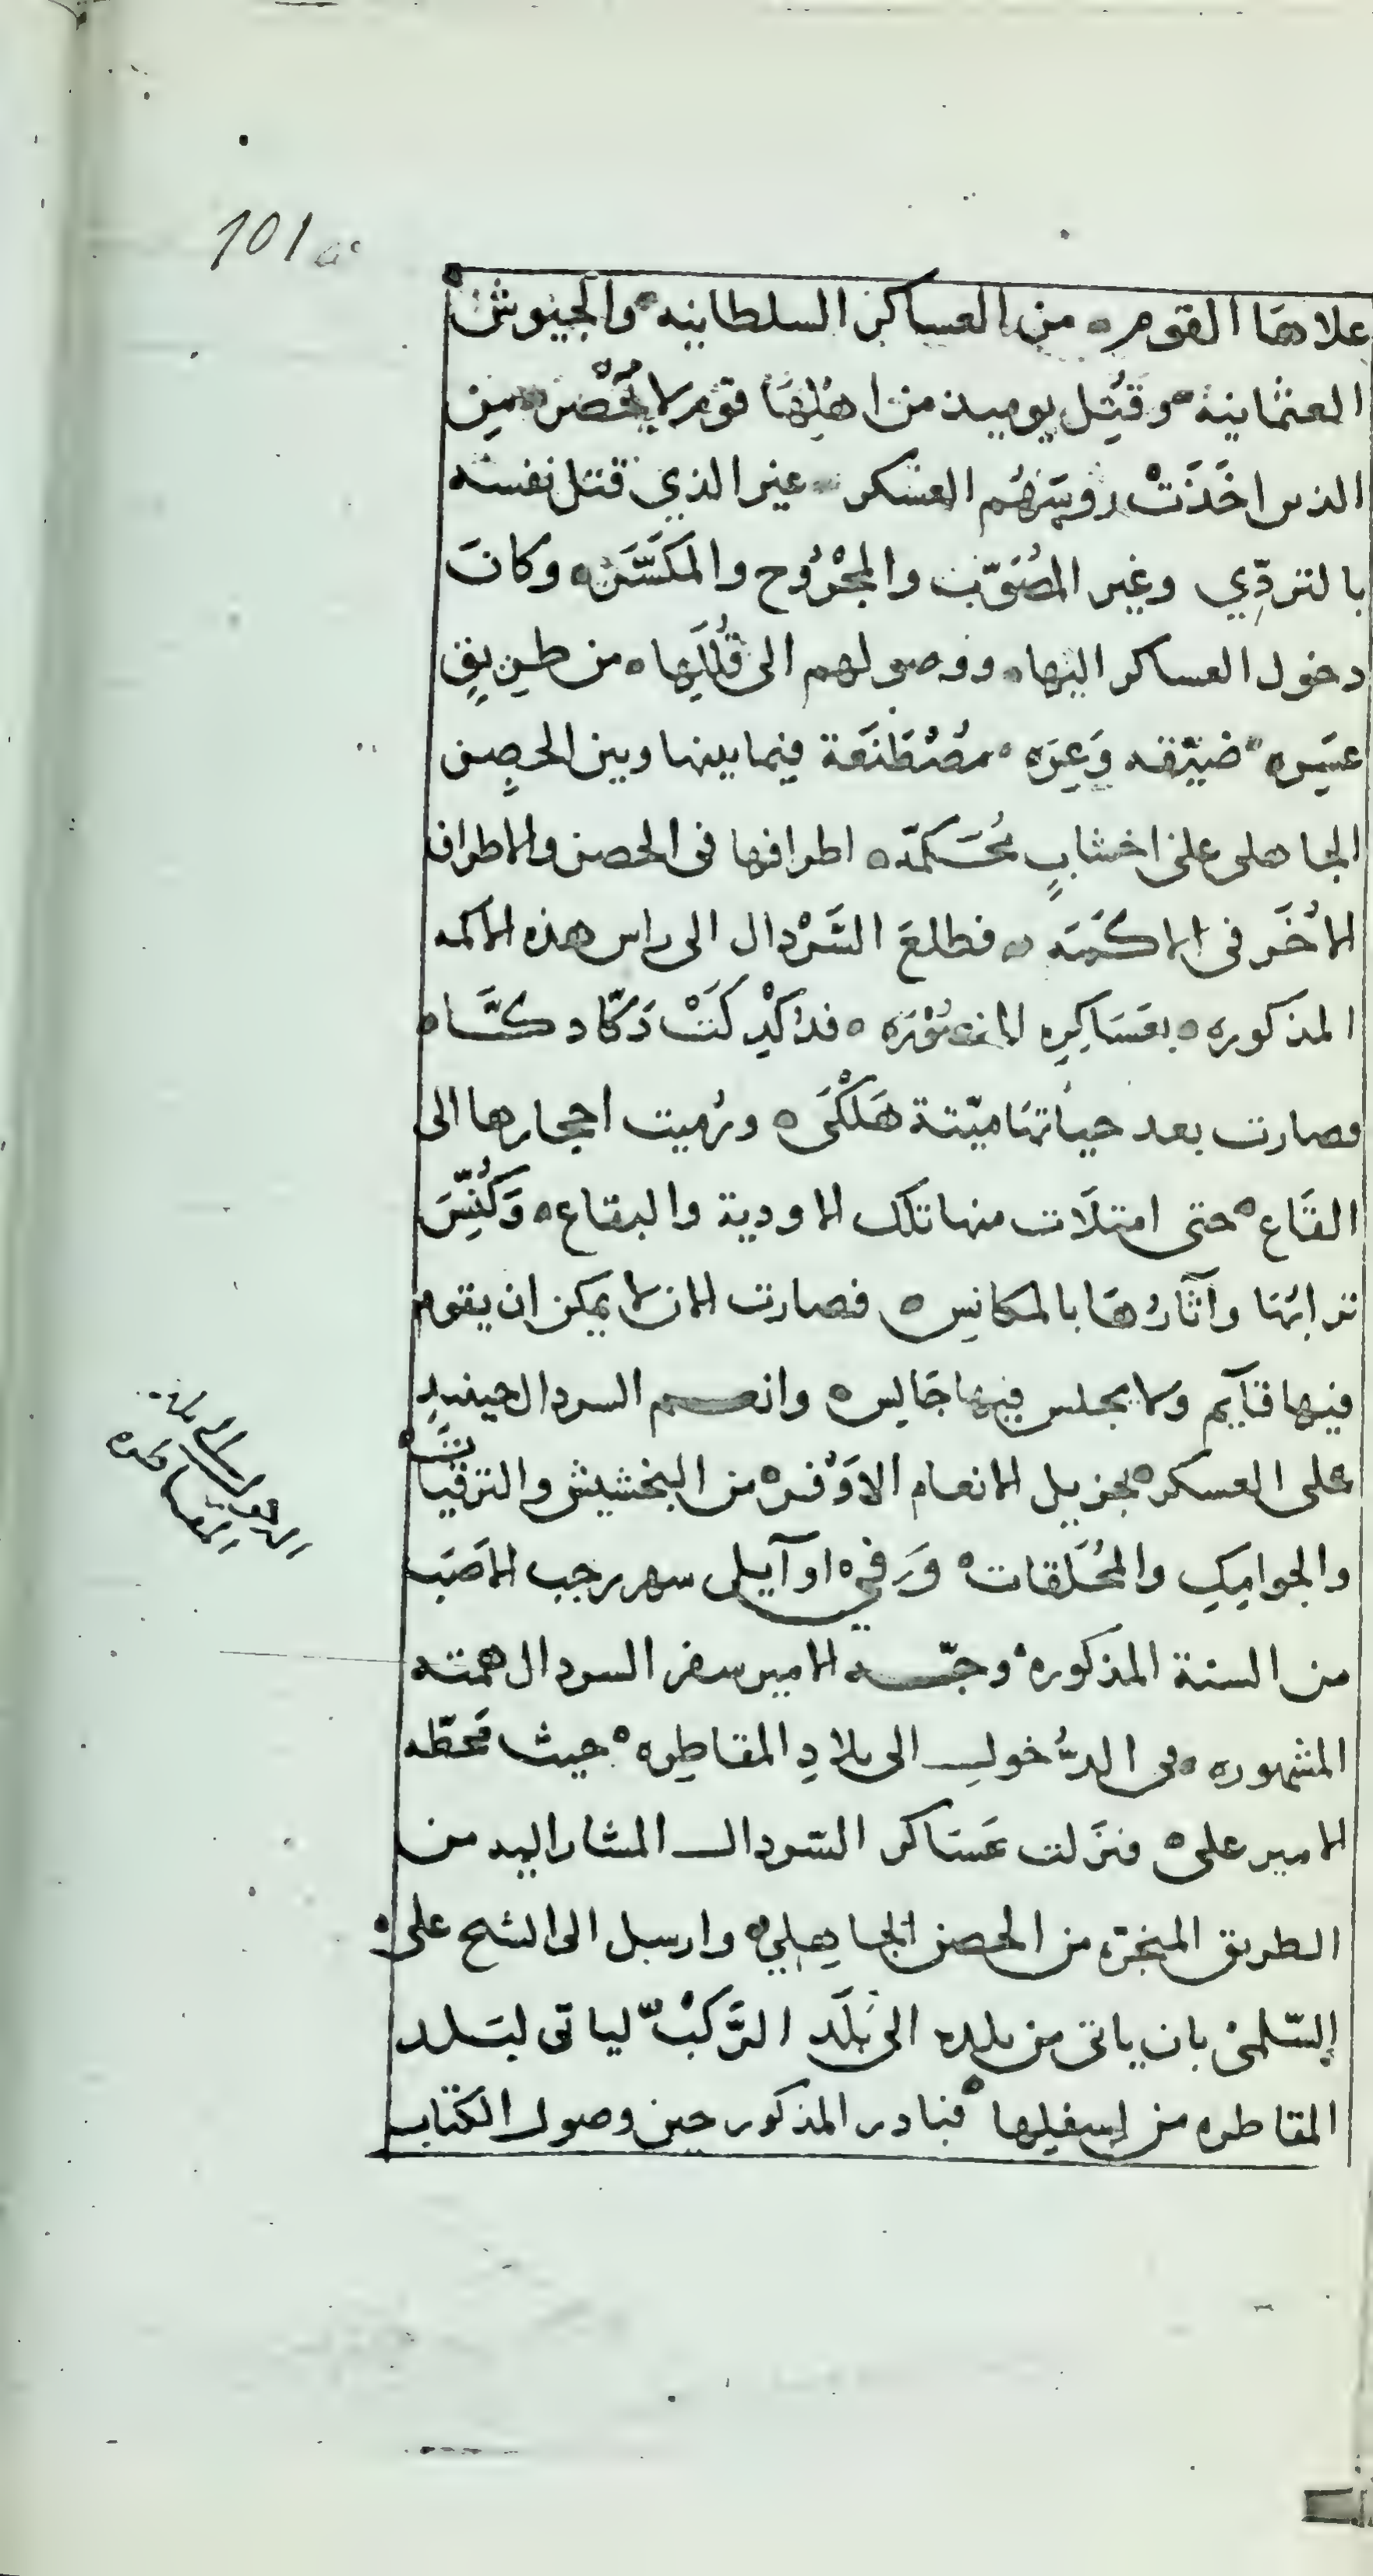 101
علاها القوم ٥ من العساكر السلطانيه ٥ والجيوش
العثمانية ٥ وقُتِل يوميذ من اهلِهَا قوم لا يُحْصَرْ ٥ مِن
الذين اخَذَتْ روسَهُم العسكر ٥ غير الذي قتل نفسه
بالتردِّي وغير المُصَوَّب والمجْرُوح والمكَسَّرَ ٥ وكانَ
دخول العساكر اليها ٥ ووصولهم الى قُلَلِها ٥ من طريقٍ
عسَِره ٥ ضيّقه وَعِرَه ٥ مصْطَنَعَة فيما بينها وبين الحصِن
الجاهلى على اخشابٍ مُحَكمّه ٥ اطرافها فى الحصن والاطراف
الأُخَر فى الاكَمَه ٥ فطلعَ السَّرْدال الى راس هذه الاكمه
المذكوره ٥ بعَسَاكِرِه المنصُوْرَه ٥ فدُكْدِكَتْ دَكّا دكَّا ٥
فصارت بعد حياتهَا ميّتة هَلْكَى ٥ ورُميت احجارها الى
القَاع ٥ حتى امتلَات منها تلك الاودية والبقاع ٥ وَكُنِّسَ
ترابُهَا وآثارُهَا بالمكانِس ٥ فصارت الان لا يمكن ان يقوم
فيها قآيم ولا يجلس فيها جَالِس ٥ وانعم السردال حينيذٍ
على العسكر ٥ بجزيل الانعام الاَوْفر ٥ من البخشيش والترقيَات ٥
والجوامِكِ والمُحَلَقات ٥ وَفي ٥ اوآيلى سهر رجب الاصَبّ
من السنة المذكوره ٥ وجّه الامير سفر السردال همته
المشهوره ٥ فى الدُّخولِ الى بلادِ المقاطِره ٥ حيث مَحطّه
الامير على ٥ فنزَلت عَسَاكر السّردال المشار اليه من
الطريق المنجرّه من الحصن الجاهِلي ٥ وارسل الى الشيح على ٥
السّلمى بان ياتى من بلده الى بَلَد الرَّكبْ لياتى لبَلد
المقاطره من اسفلِها ٥ فبادر المذكور حين وصول الكتاب
الدخول الى بلاد
المقاطره